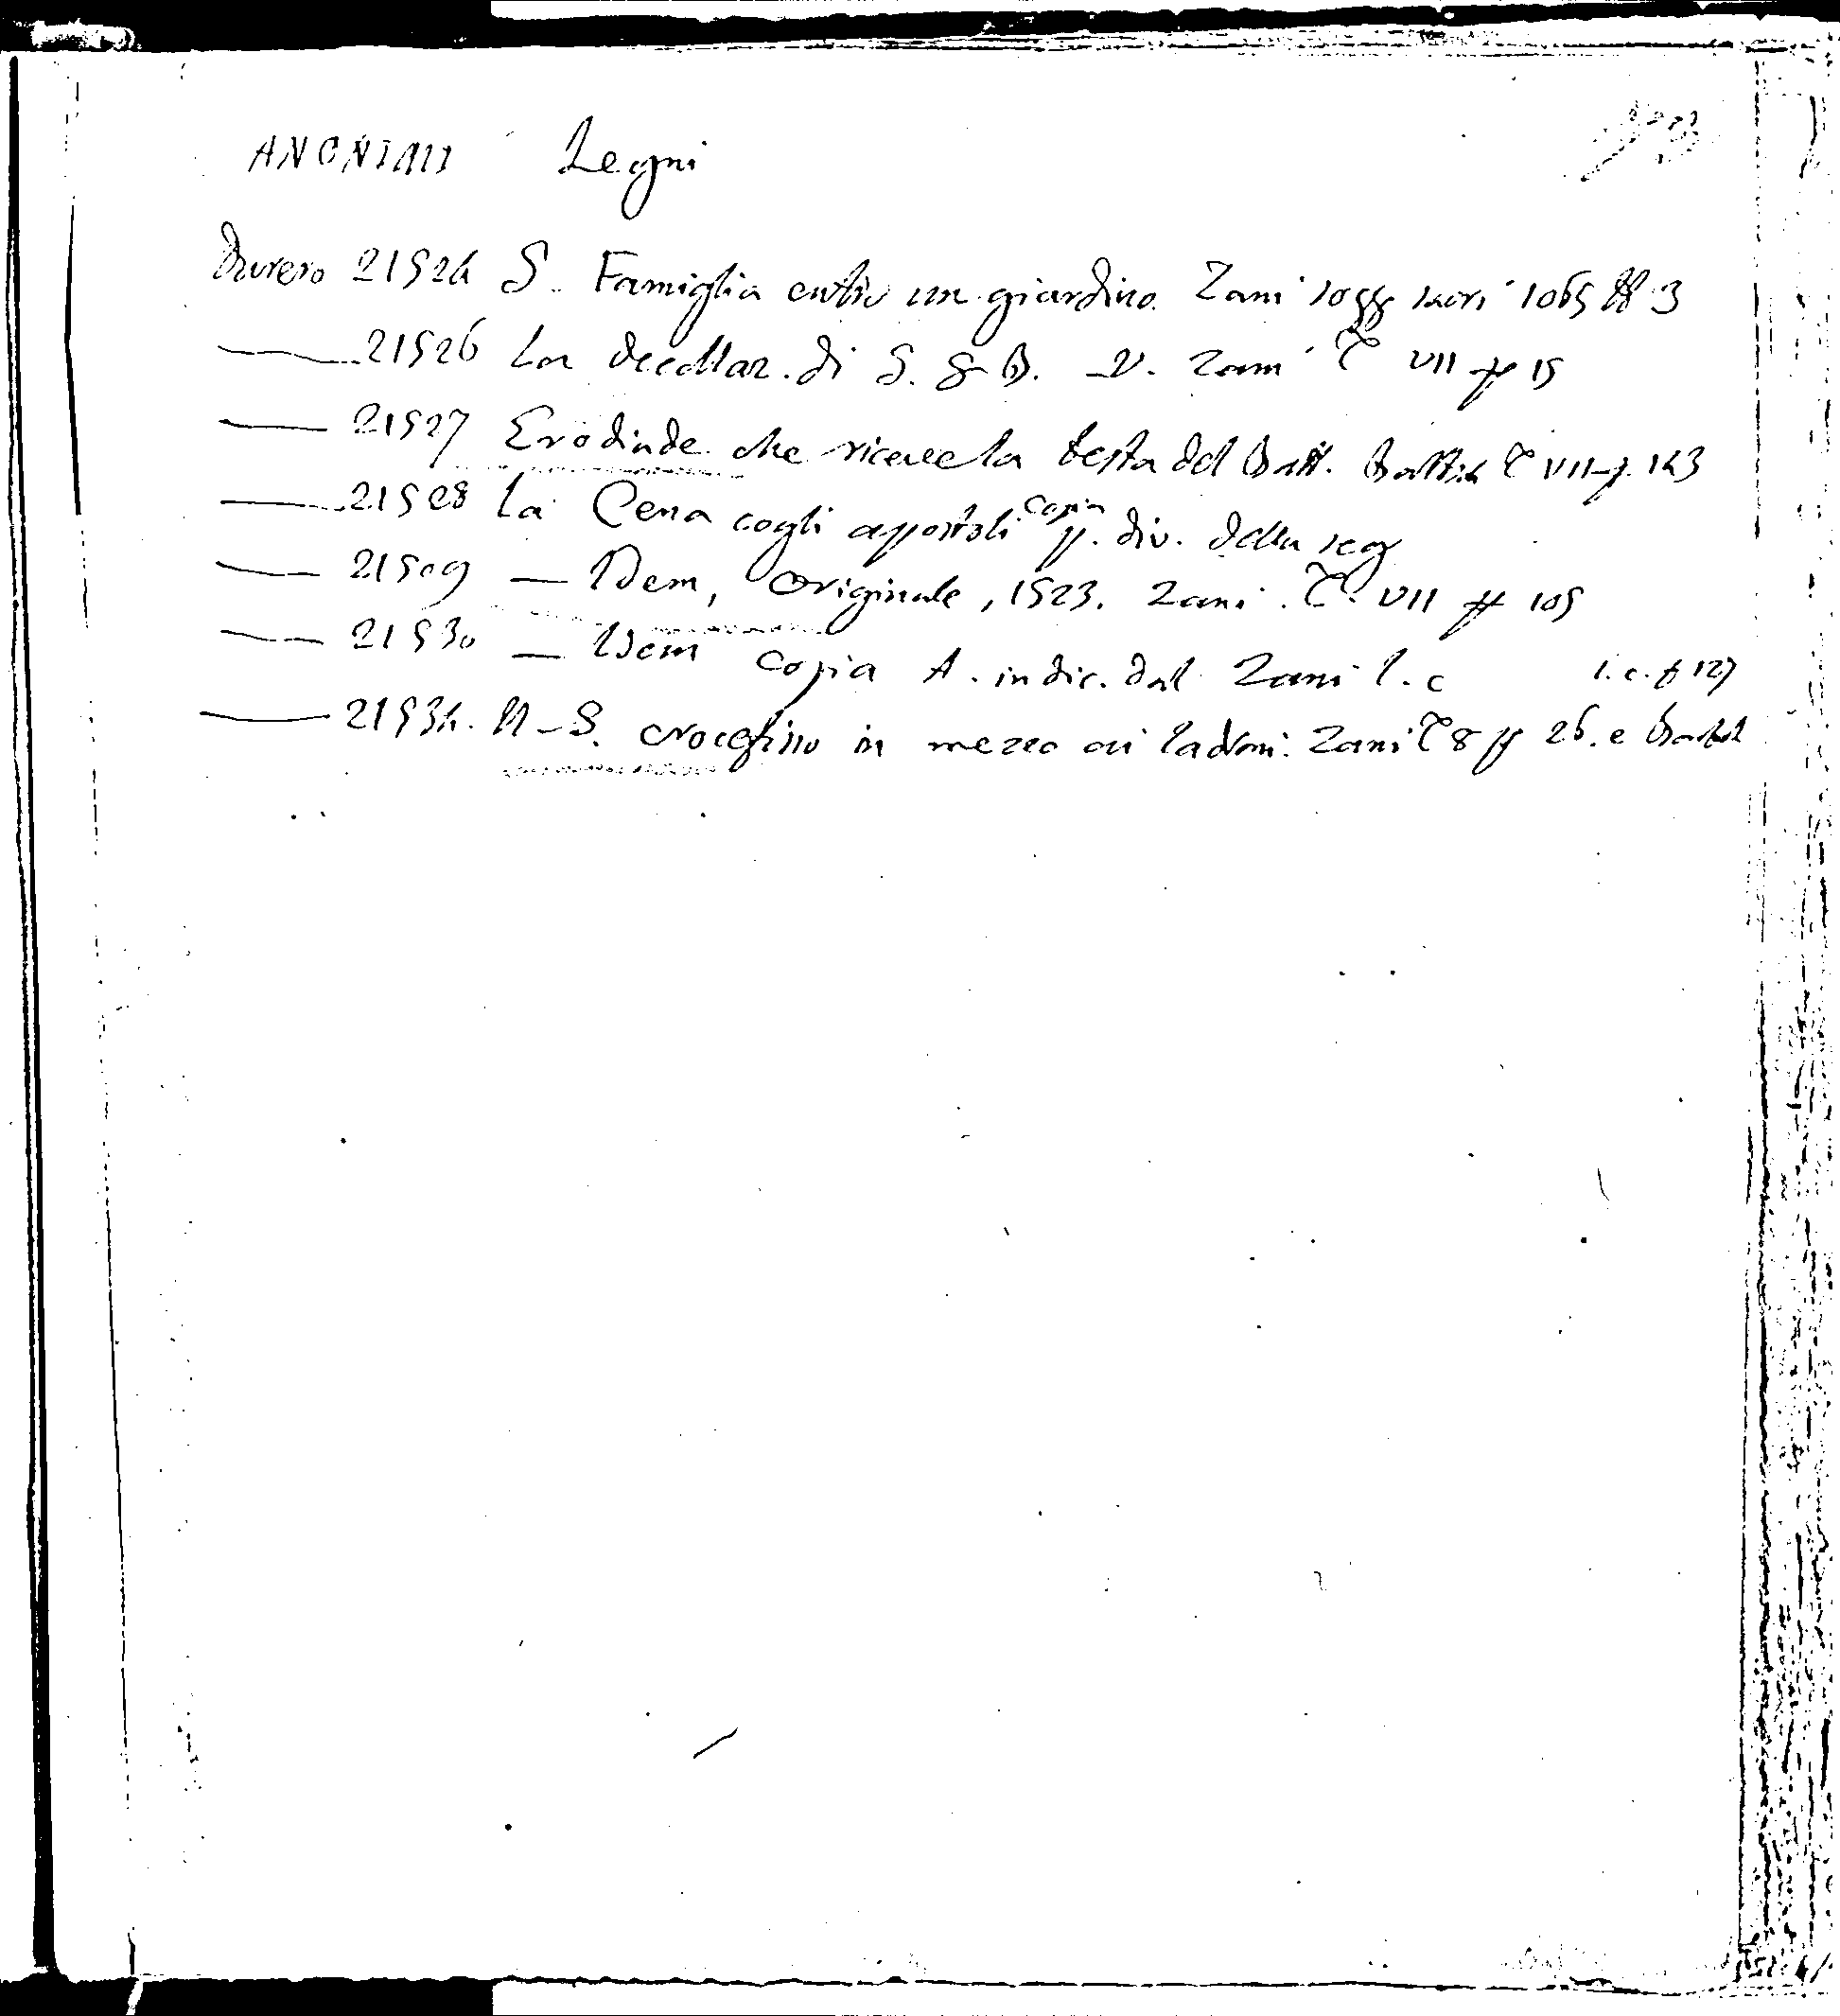 ANONIMI Legni
Durero 2152h S. Famiglia entro un giardino. Zani 1065 3
— 21526 La decollaz. di S. G. B. Zani T VII p 15
— 21527 Erodiade che riceve la testa del Batt. T VII p. 143
— 21528 La Cena cogli apostoli copia p. div. della seg
— 21509 — Idem, Originale, 1523. Zani. T. VII p 105
— 21530 — Idem Copia A. indic. dal Zani l. c l. c. p 127
— 2153h. N-S. crocefisso in mezzo ai ladroni. Zani T 8 p 26. e